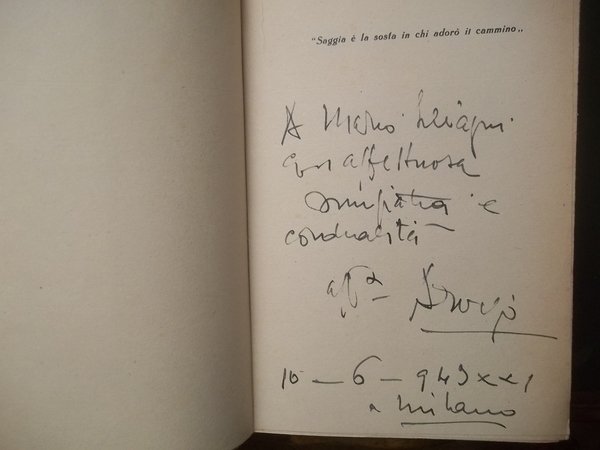 "Saggia è la sosta in chi adorò il cammino„
A Mario
con affettuosa
simpatia e
cordialità
aff.
10 - 6 - 943 XXI
a Milano